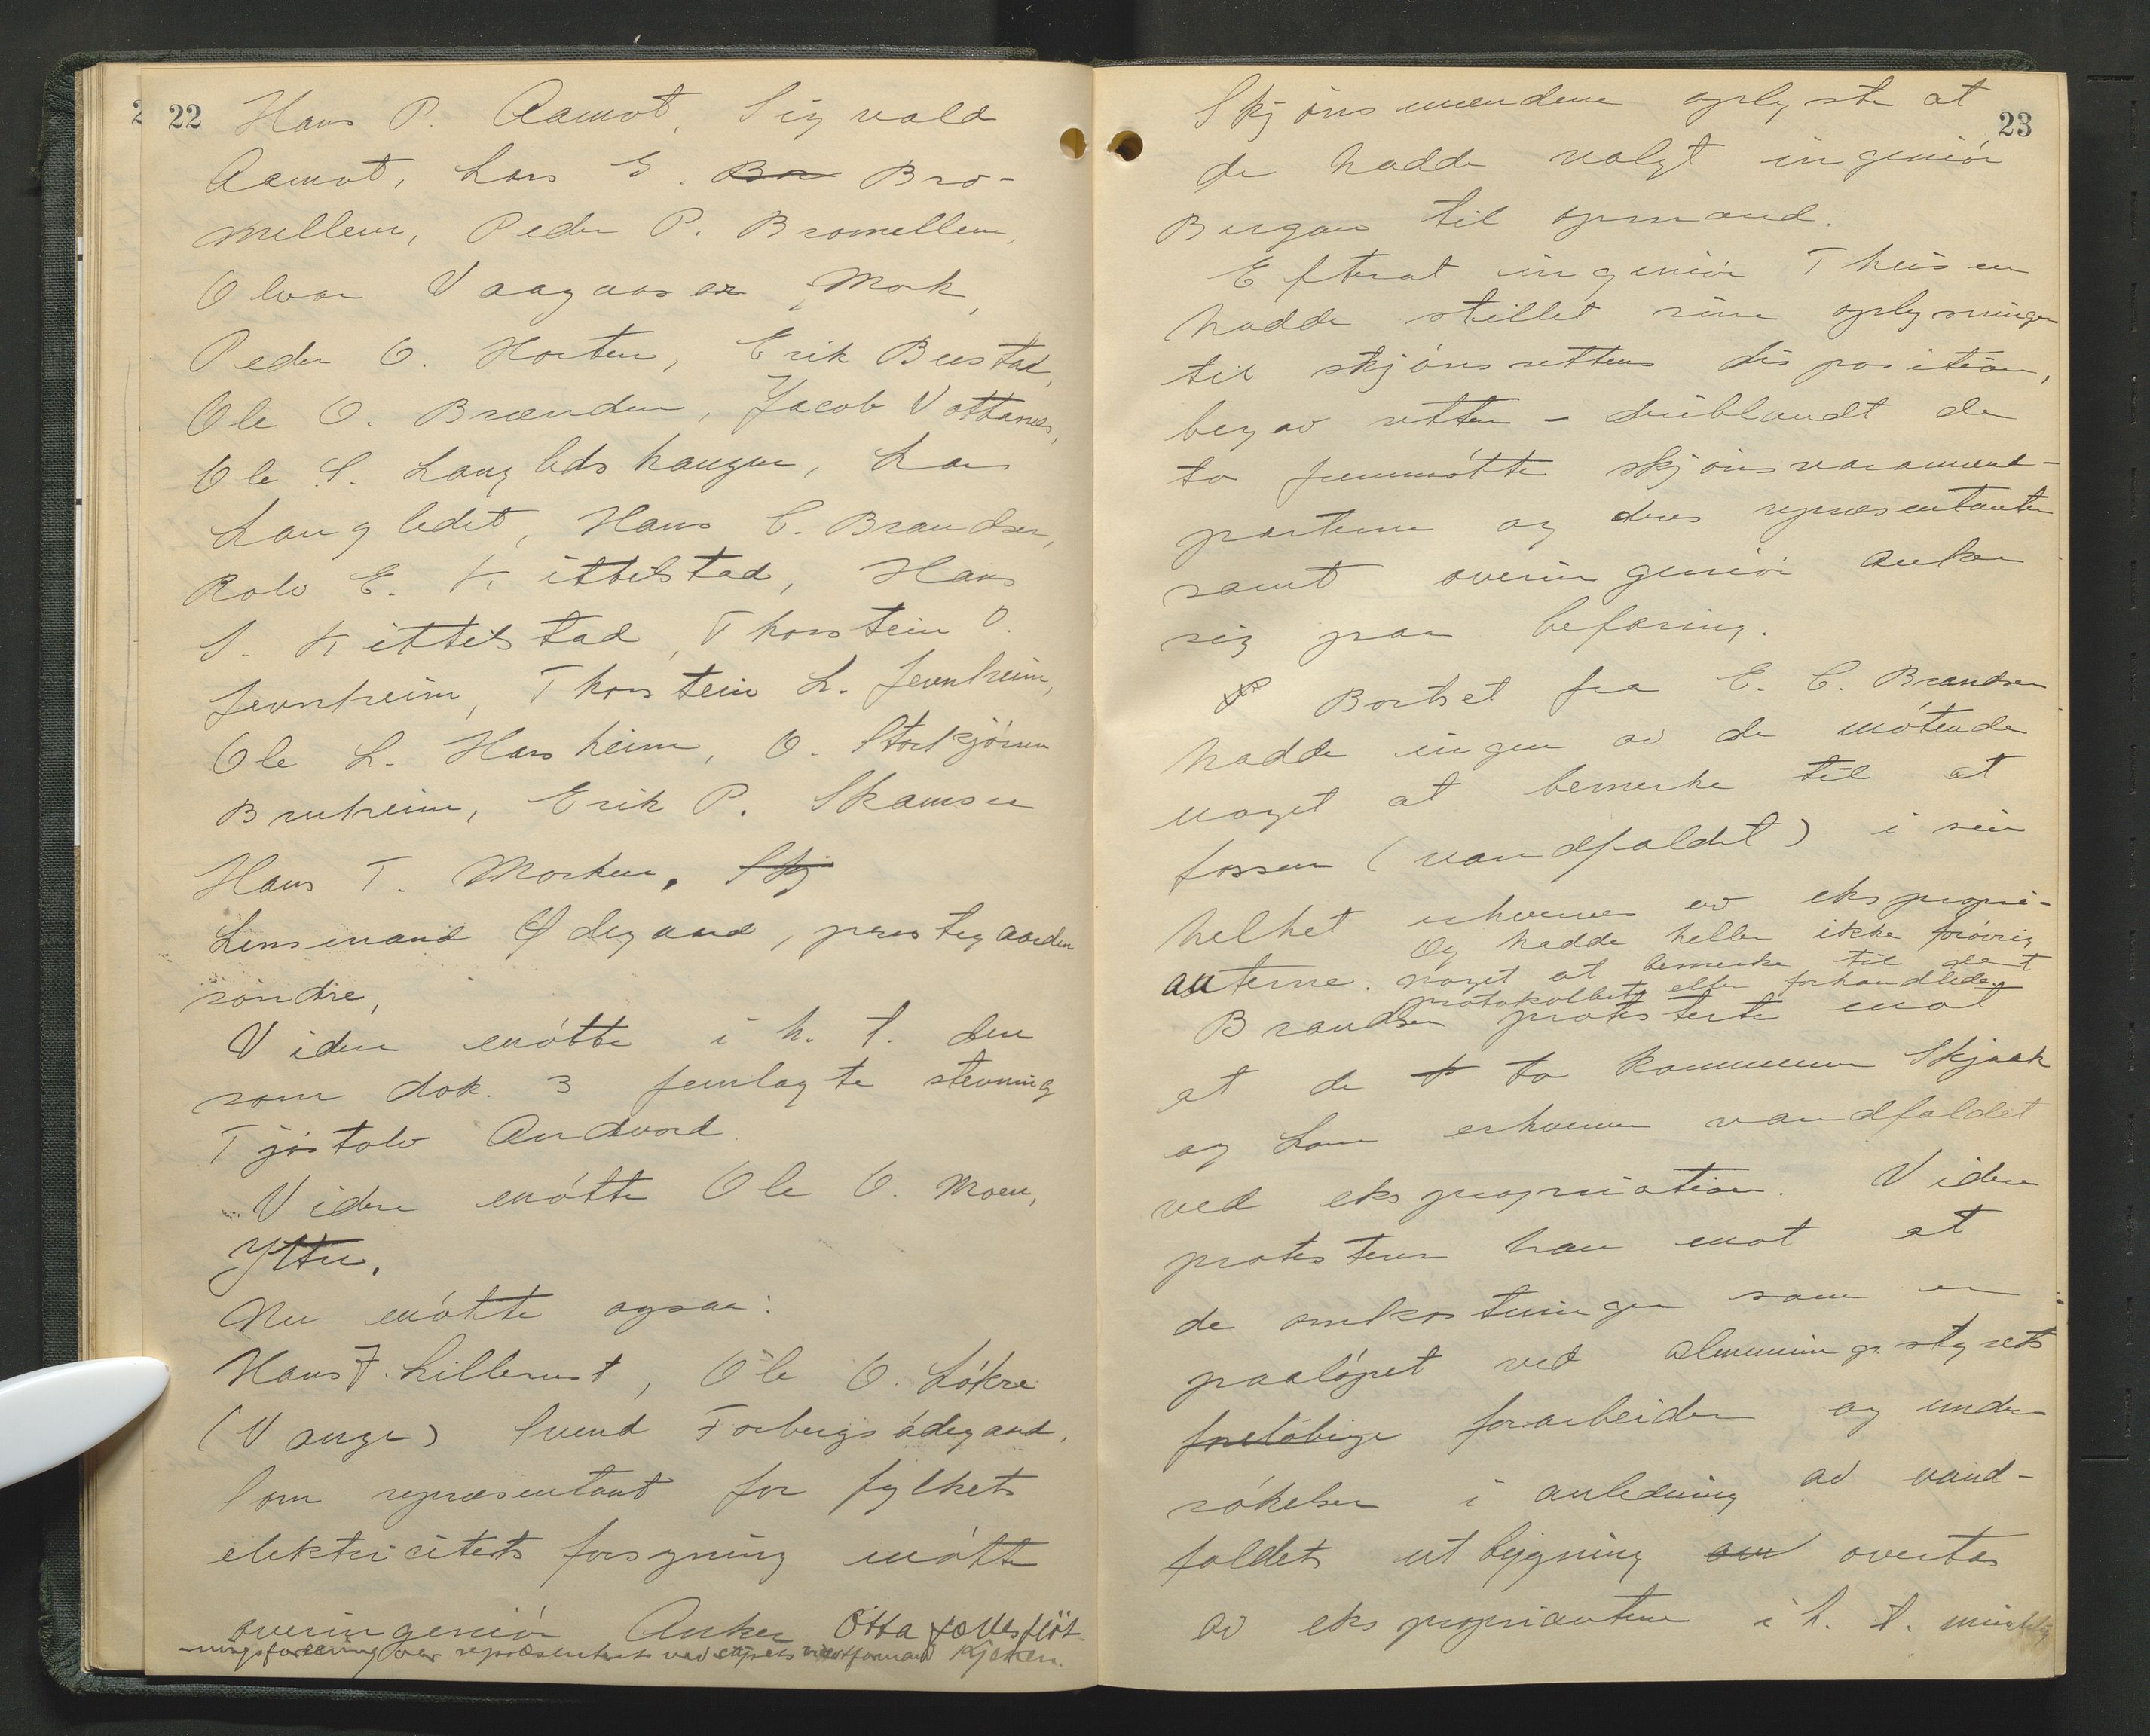 22
Hans P. Aamot, Sigvald
Aamot, Lars E. Bro Bro-
mellem, Peder P. Bromellem,
Olvar Vaagaasar, Mork,
Peder O. Horten, Erik Bustad,
Ole O. Brænden, Jacob Vottanes,
Ole S. Langledshaugen, Lars
Langledet, Hans C. Brandser,
Rolv E. Kittilstad, Hans
S. Kittilstad, Thorstein O.
Jevnheim, Thorstein L. Jevnheim,
Ole L. Harsheim, O. Storkjørren
Bruheim, Erik P. Skamsar
Hans T. Morken. Skj
Lensmand Ødegaard, prestegaarden
søndre,
Videre møtte i h. t. den
som dok. 3 fremlagte stevning
Tjøstolv Andvord.
Videre møtte Ole O. Moen,
Yttre.
Nu møtte ogsaa:
Hans F. Lillerust, Ole O. Løkre
(Vange) Svend Forbergsødegaard.
Som repræsentant for fylkets
elektricitetsforsyning møtte
overingeniør Anker Otta fællesfløt-
ningsforening var repræsentert ved viseformand Kjæstad.
23
Skjønsmændene oplyste at
de hadde valgt ingeniør
Bergan til opmand.
Efterat ingeniør Theisen
hadde stillet sine oplysninger
til skjønsrettens disposition,
begav retten - deriblandt de
to fremmøtte skjønsvaramænd -
parterne og deres repræsentanter
samt overingeniør Anker
sig paa befaring.
Bortset fra E. C. Brandser
hadde ingen av de møtende
noget at bemerke til at
fossen (vandfaldet) i sin
helhet erhverves av ekspropri-
anterne. Og hadde heller ikke forøvrig
noget at bemerke til det
protokollerte eller forhandlede.
Brandser protesterte mot
at de to kommuner Skjaak
og Lom erhverver vandfaldet
ved ekspropriation. Videre
protesterer han mot at
de omkostninger som er
paaløpet ved almenningsstyrets
foreløbige forarbeider og under-
søkelser i anledning av vand-
faldets utbygning overtas
av eksproprianterne i h. t. mindelig